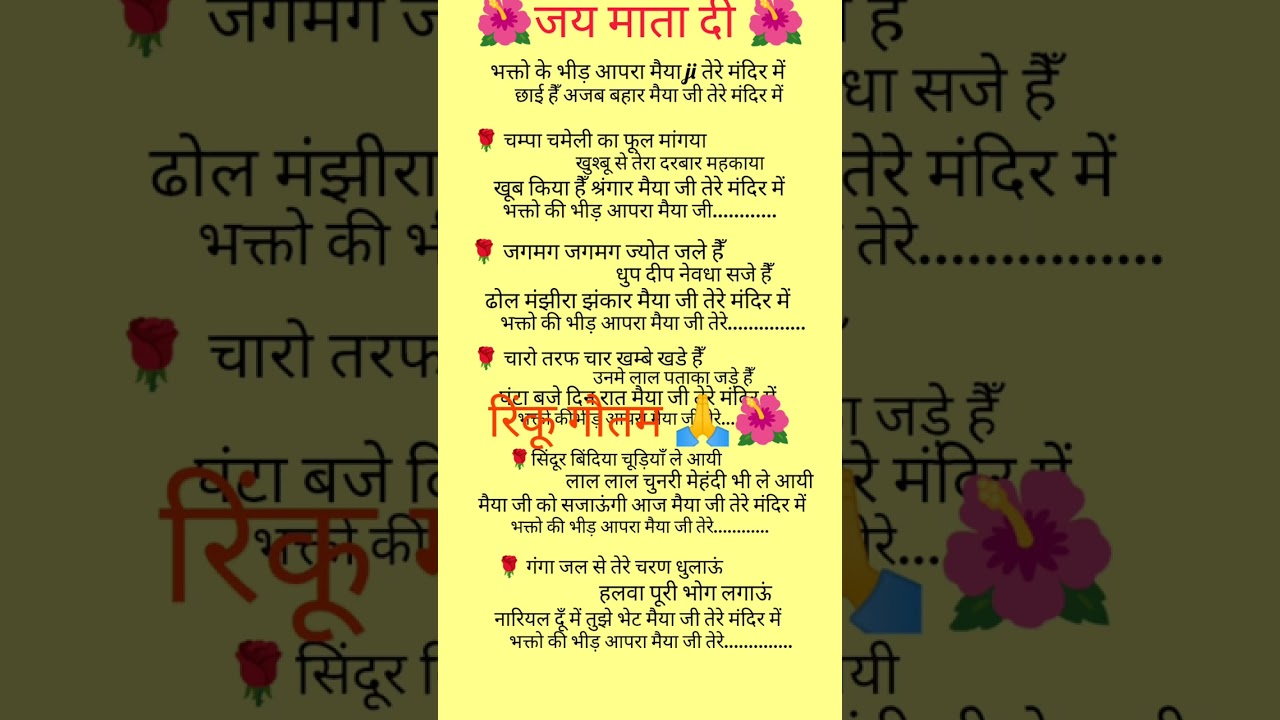 जय माता दी
भक्तो के भीड़ आपरा मैया ji तेरे मंदिर में
छाई हैँ अजब बहार मैया जी तेरे मंदिर में
चम्पा चमेली का फूल मांगया
खुश्बू से तेरा दरबार महकाया
खूब किया हैँ श्रंगार मैया जी तेरे मंदिर में
भक्तो की भीड़ आपरा मैया जी............
जगमग जगमग ज्योत जले हैँ
धुप दीप नेवधा सजे हैँ
ढोल मंझीरा झंकार मैया जी तेरे मंदिर में
भक्तो की भीड़ आपरा मैया जी तेरे...............
चारो तरफ चार खम्बे खडे हैँ
उनमे लाल पताका जड़े हैँ
घंटा बजे दिन रात मैया जी तेरे मंदिर में
भक्तो की भीड़ आपरा मैया जी तेरे...
रिंकू गौतम
सिंदूर बिंदिया चूड़ियाँ ले आयी
लाल लाल चुनरी मेहंदी भी ले आयी
मैया जी को सजाऊंगी आज मैया जी तेरे मंदिर में
भक्तो की भीड़ आपरा मैया जी तेरे............
गंगा जल से तेरे चरण धुलाऊं
हलवा पूरी भोग लगाऊं
नारियल दूँ में तुझे भेट मैया जी तेरे मंदिर में
भक्तो की भीड़ आपरा मैया जी तेरे..............